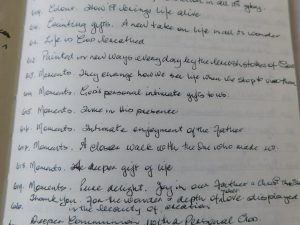 in all its glory.
609. Colour. How it brings life alive
610. Counting gifts. A new take on life and its wonder
611. Life is God breathed
612. Painted in new ways every day by the brush strokes of God
613. Moments. They change how we see life when we stop & use them
614. Moments. God's personal intimate gifts to us.
615. Moments. Time in His presence
616. Moments. Intimate enjoyment of the Father
617. Moments. A closer walk with the One who made us.
618. Moments. A deeper gift of life
619. Moments. Pure delight. Joy in our Father & Christ the
620. Thank you. For the wonder & depth of above displayed
in the security of creation
Deeper Communion with a Personal God.